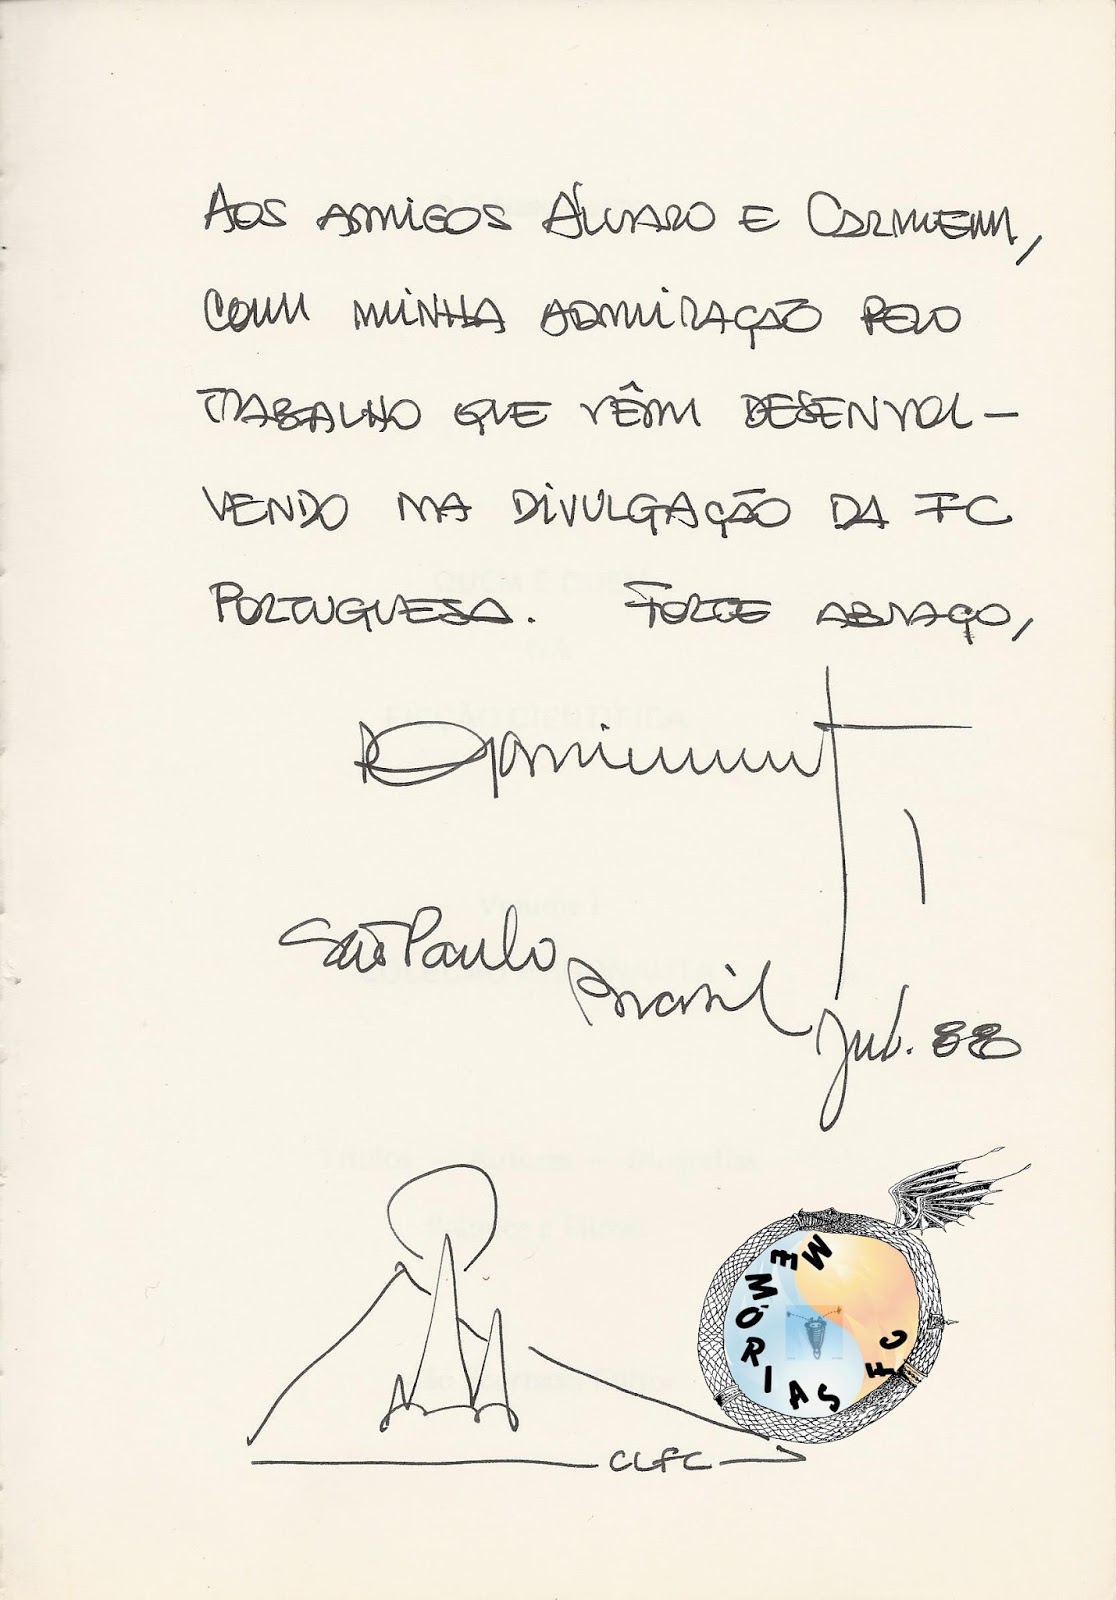 AOS AMIGOS ÁLVARO E CARMEM,
COM MINHA ADMIRAÇÃO PELO
TRABALHO QUE VÊM DESENVOL-
VENDO NA DIVULGAÇÃO DA FC
PORTUGUESA. FORTE ABRAÇO,
São Paulo
Brasil
Jul. 88
MEMÓRIAS FC
CLFC